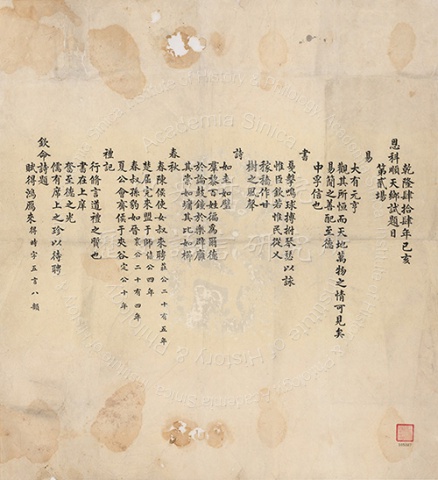 乾隆肆拾肆年己亥
恩科順天鄉試題目
第貳場
易
大有元亨
觀其所恒而天地萬物之情可見矣
易簡之善配至德
中孚信也
書
戛擊鳴球搏拊琴瑟以詠
惟臣欽若惟民從乂
稼穡作甘
樹之風聲
詩
如圭如璧
羣黎百姓徧為爾德
於論鼓鐘於樂辟廱
其崇如墉其比如櫛
春秋
春陳侯使女叔來聘 莊公二十有五年
楚屈完來盟于師 僖公四年
春叔孫豹如晉 襄公二十有四年
夏公會齊侯于夾谷 定公十年
禮記
行修言道禮之質也
書在上庠
奮至德之光
儒有席上之珍以待聘
欽命詩題
賦得鴻雁來 得時字五言八韻